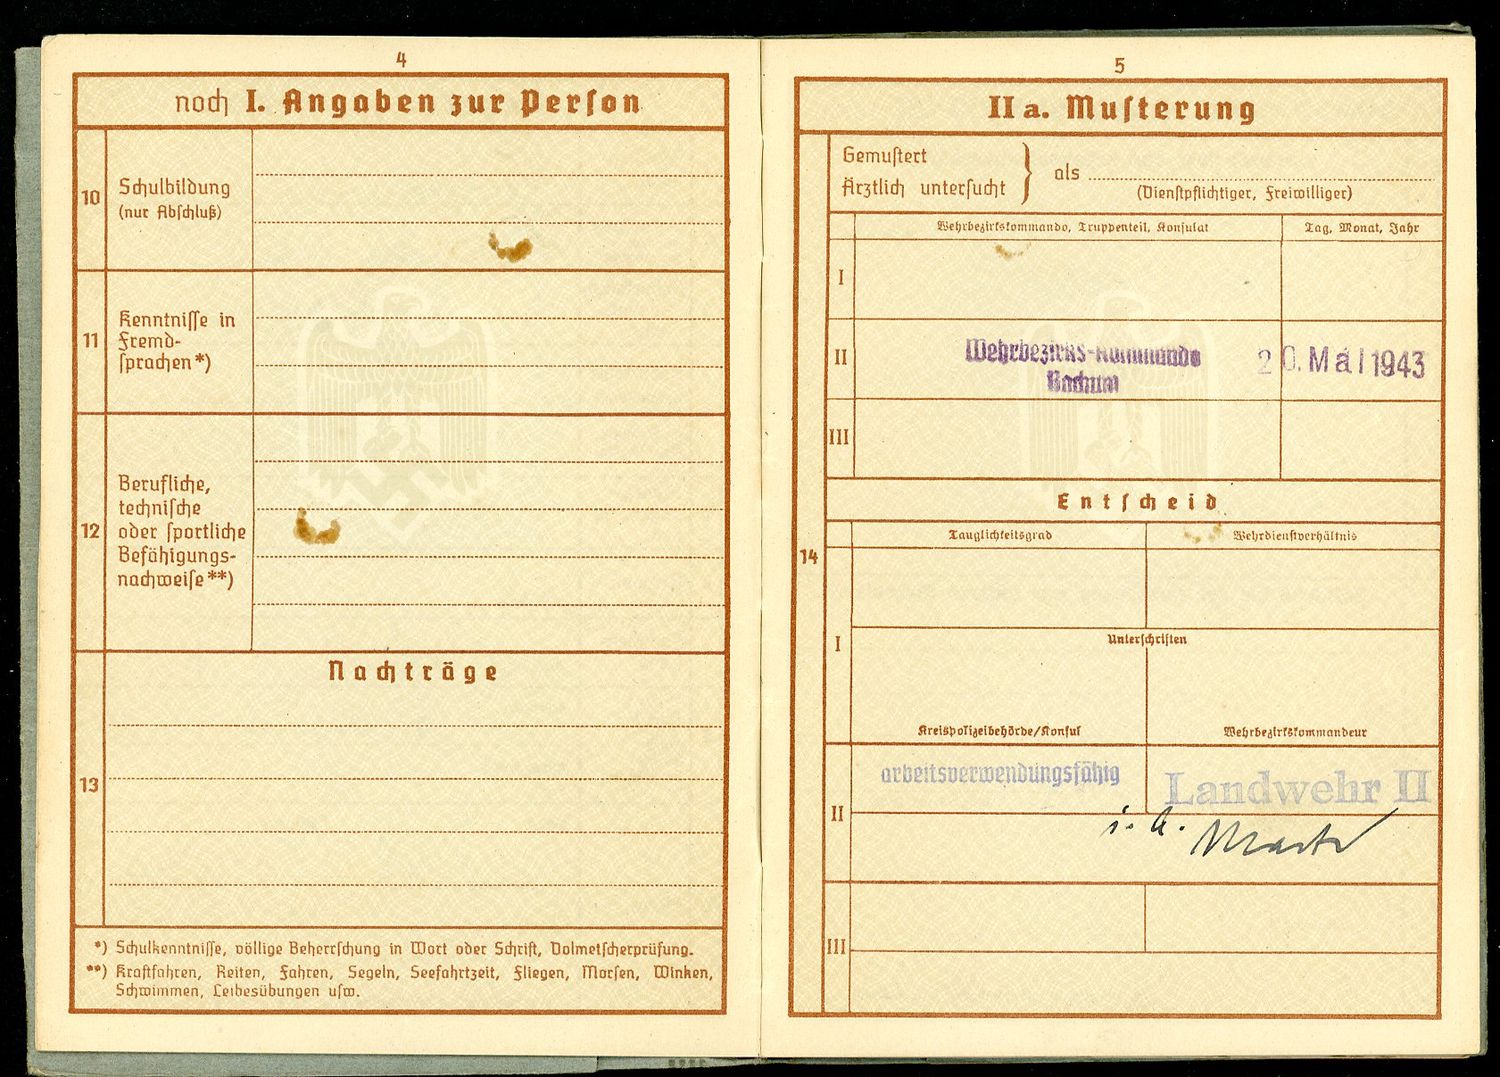 4
noch I. Angaben zur Person
10
Schulbildung
(nur Abschluß)
11
Kenntnisse in
Fremd-
sprachen*)
12
Berufliche,
technische
oder sportliche
Befähigungs-
nachweise**)
Nachträge
13
*) Schulkenntnisse, völlige Beherrschung in Wort oder Schrift, Dolmetscherprüfung.
**) Kraftfahren, Reiten, Fahren, Segeln, Seefahrtzeit, Fliegen, Morsen, Winken,
Schwimmen, Leibesübungen usw.
5
IIa. Musterung
Gemustert
Ärztlich untersucht } als
(Dienstpflichtiger, Freiwilliger)
Wehrbezirkskommando, Truppenteil, Konsulat
Tag, Monat, Jahr
I
II
Wehrbezirks-Kommando
Bochum
20. Mai 1943
III
Entscheid
14
Tauglichkeitsgrad
Wehrdienstverhältnis
I
Unterschriften
Kreispolizeibehörde/Konsul
Wehrbezirkskommandeur
II
arbeitsverwendungsfähig
Landwehr II
i. A.
III